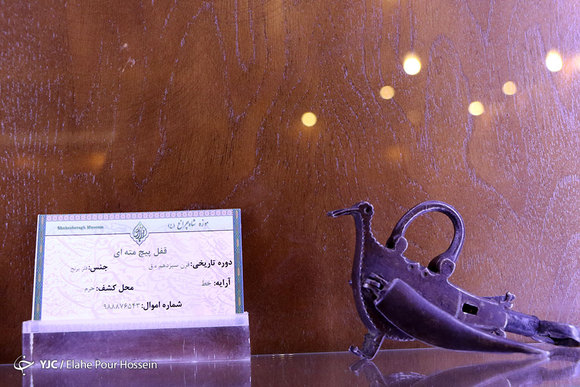 Shahecheragh Museum موزه شاهچراغ (ع)
قفل پیچ مته ای
دوره تاریخی: قرن سیزدهم ه ق جنس: فلز برنج
آرایه: خط محل کشف: حرم
شماره اموال: ۹۸۸۸۷۶۵۴۳
YJC / Elahe Pour Hossein